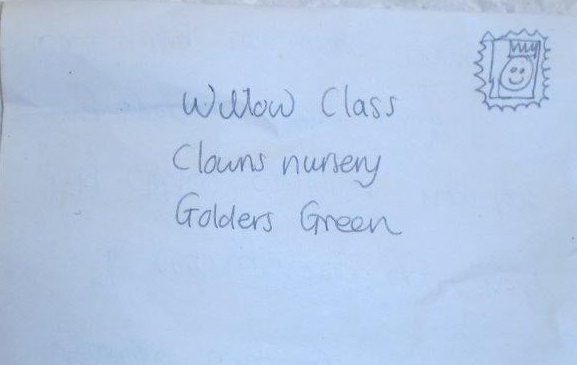 Willow Class
Clowns nursery
Golders Green